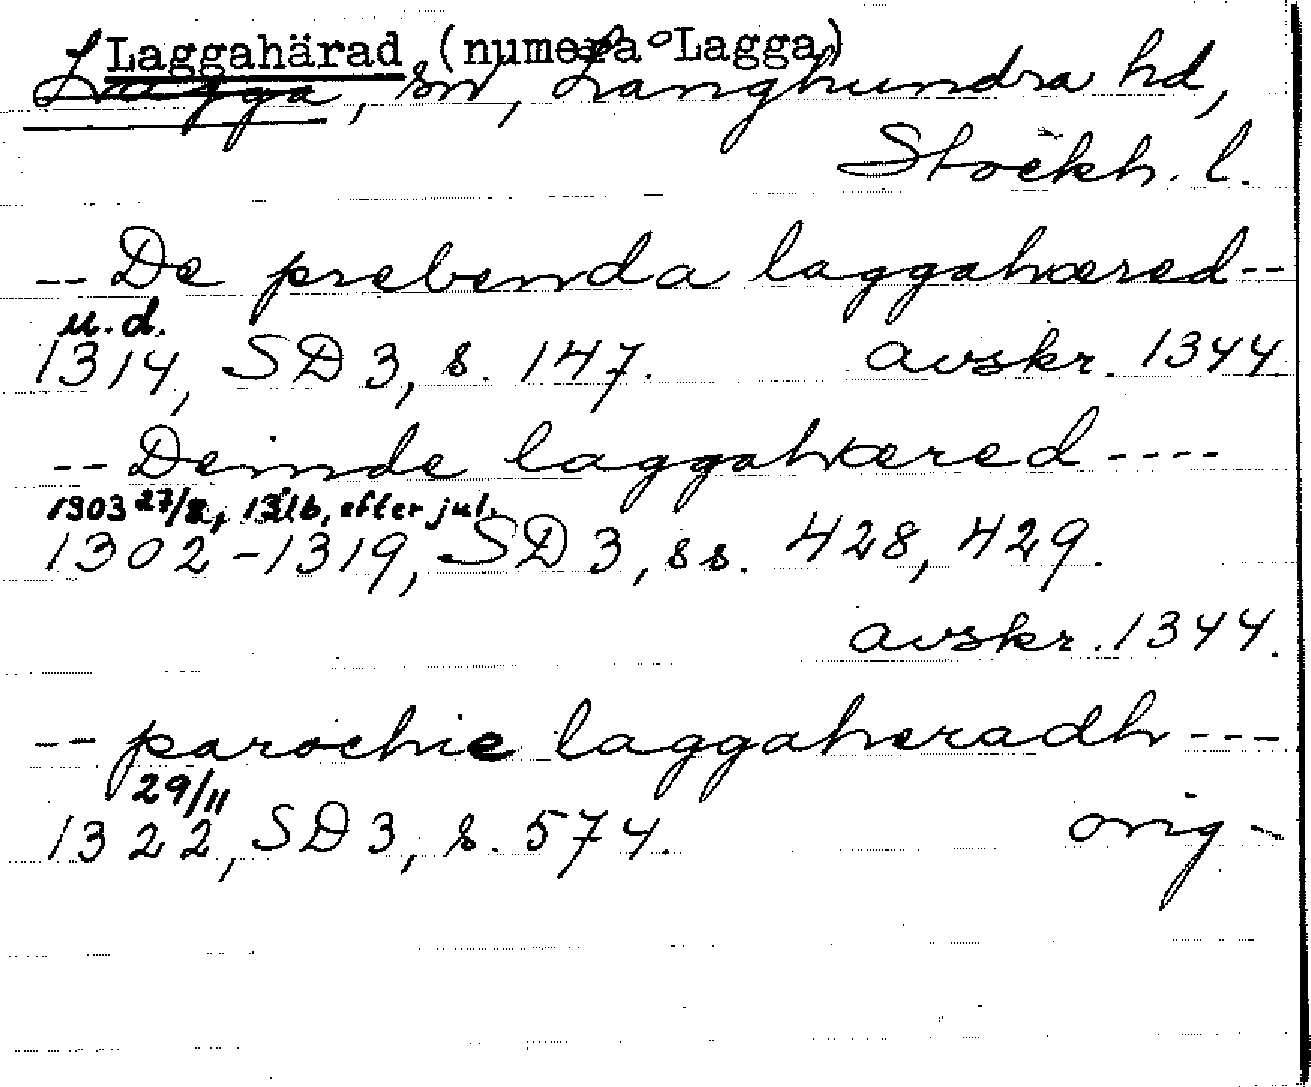 Laggahärad (numera Lagga)
Lagga, sn, Långhundra hd,
Stockh. l.
-- De prebenda laggahæred --
u.d.
1314, SD 3, s. 147. avskr. 1344
-- Deinde laggahæred ----
1303 27/8, efter jul.
1302-1319, SD 3, ss. 428, 429.
avskr. 1344.
-- parochie laggaheradh ---
29/11
1322, SD 3, s. 574. orig -